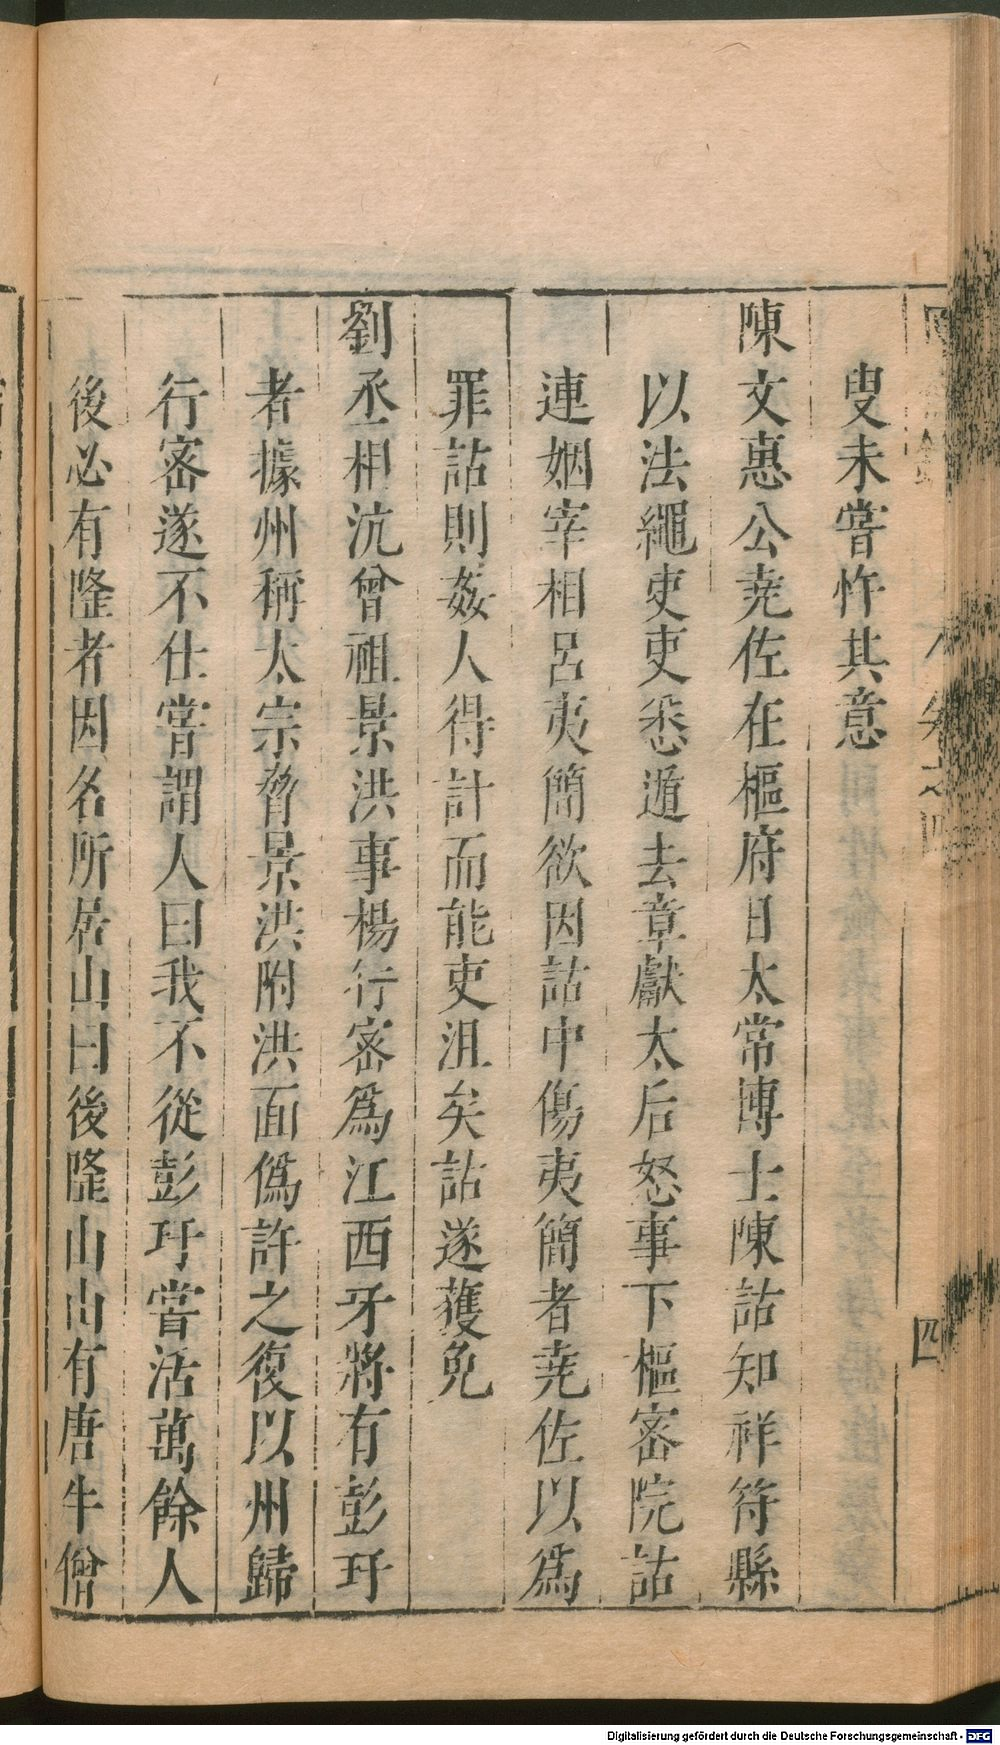 叟未嘗忤其意
陳文惠公堯佐在樞府日太常博士陳詁知祥符縣
以法繩吏吏悉遁去章獻太后怒事下樞密院詁
連姻宰相呂夷簡欲因詁中傷夷簡者堯佐以為
罪詁則姦人得計而能吏沮矣詁遂獲免
劉丞相沆曾祖景洪事楊行密爲江西牙將有彭玕
者據州稱太宗脅景洪附洪面僞許之復以州歸
行密遂不仕嘗謂人曰我不從彭玕嘗活萬餘人
後必有隆者因名所居山曰後隆山山有唐牛僧
四
Digitalisierung gefördert durch die Deutsche Forschungsgemeinschaft - DFG